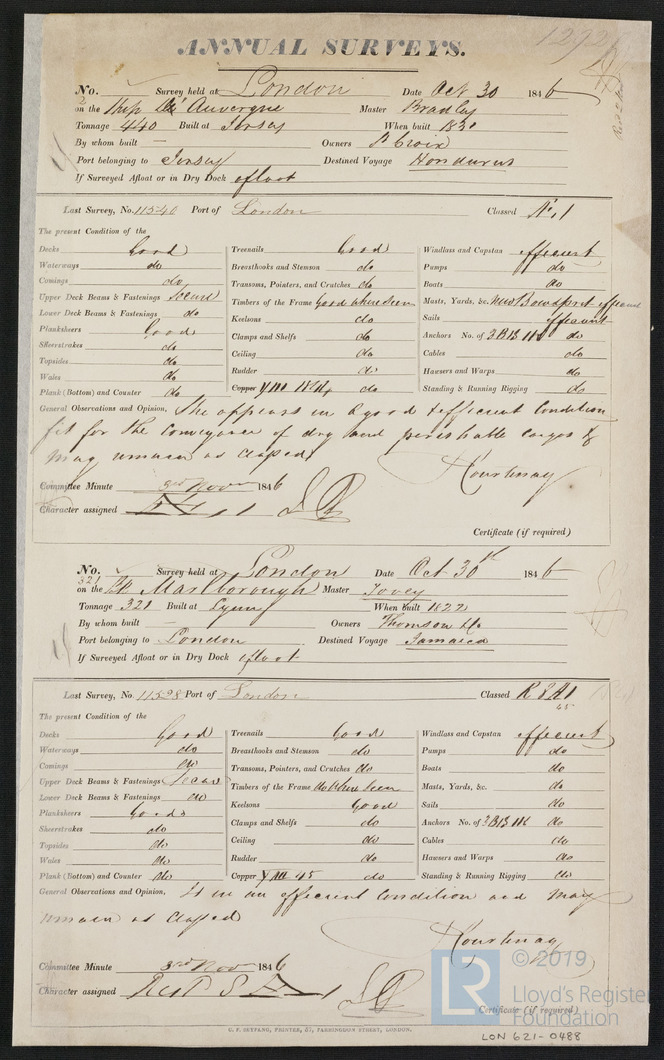 ANNUAL SURVEYS.
No. Survey held at London Date Oct 30 1846
on the Ship D'Auvergne Master Bradley
Tonnage 440 Built at Jersey When built 183
By whom built — Owners P Croix
Port belonging to Jersey Destined Voyage Honduras
If Surveyed Afloat or in Dry Dock afloat
Last Survey, No. 11540 Port of London Classed
The present Condition of the
Decks Good Treenails Good Windlass and Capstan efficient
Waterways do Breasthooks and Stemson do Pumps do
Comings do Transoms, Pointers, and Crutches do Boats do
Upper Deck Beams & Fastenings Secure Timbers of the Frame Good where seen Masts, Yards, &c. New Bowsprit efficient
Lower Deck Beams & Fastenings do Keelsons do Sails efficient
Planksheers Good Clamps and Shelfs do Anchors No. of 3 B 1 S 1 K do
Sheerstrakes do Ceiling do Cables do
Topsides do Rudder do Hawsers and Warps do
Wales do Copper do Standing & Running Rigging do
Plank (Bottom) and Counter do
General Observations and Opinion, She appears in a good & efficient Condition
fit for the Conveyance of dry and perishable cargos &
may remain as Classed
Courtenay
Committee Minute 3rd Nov 1846
Character assigned
Certificate (if required)
No. Survey held at London Date Oct 30th 1846
321
on the Marlborough Master Tovey
Tonnage 321 Built at Lynn When built 1822
By whom built — Owners Thomson & Co.
Port belonging to London Destined Voyage Jamaica
If Surveyed Afloat or in Dry Dock afloat
Last Survey, No. 11528 Port of London Classed
45
The present Condition of the
Decks Good Treenails Good Windlass and Capstan efficient
Waterways do Breasthooks and Stemson do Pumps do
Comings do Transoms, Pointers, and Crutches do Boats do
Upper Deck Beams & Fastenings Secure Timbers of the Frame do where seen Masts, Yards, &c. do
Lower Deck Beams & Fastenings do Keelsons Good Sails do
Planksheers Good Clamps and Shelfs do Anchors No. of 3 B 1 S 1 K do
Sheerstrakes do Ceiling do Cables do
Topsides do Rudder do Hawsers and Warps do
Wales do Copper 45 do Standing & Running Rigging do
Plank (Bottom) and Counter do
General Observations and Opinion, Is in an efficient Condition and may
remain as Classed
Courtenay
Committee Minute 3rd Nov 1846
Character assigned
Certificate (if required)
C. F. SEYFANG, PRINTER, 57, FARRINGDON STREET, LONDON.
LR ©2019
Lloyd's Register
Foundation
LON 621-0488